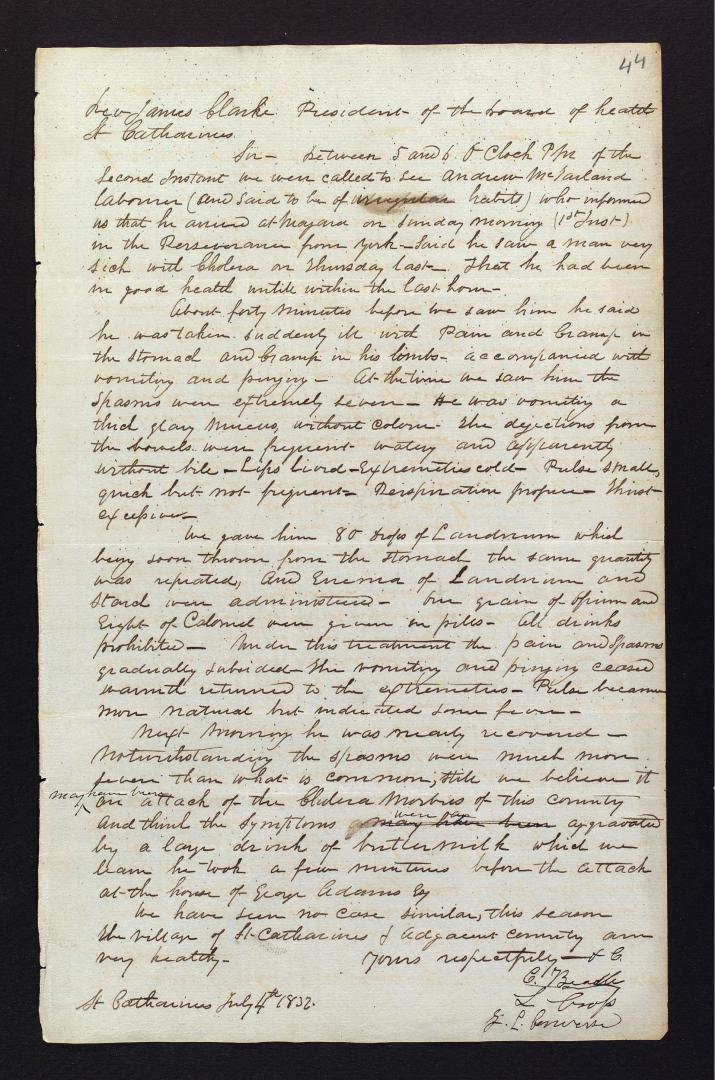 44
Rev James Clarke President of the board of health
St Catharines
Sir - between 5 and 6 O Clock P.M. of the
Second Instant we were called to see Andrew McFarland
labourer (and said to be of irregular habits) who informed
us that he arrived at Niagara on Sunday morning (1st Inst)
in the Perseverance from York - Said he saw a man very
sick with Cholera on Thursday last - That he had been
in good health untill within the last hour -
About forty minutes before we saw him he said
he was taken suddenly ill with Pain and Cramp in
the Stomach and Cramp in his limbs - accompanied with
vomiting and purging - At the time we saw him the
Spasms were extremely severe - He was vomiting a
thick glary Mucus, without colour - The dejections from
the bowels were frequent watery and apparently
without bile - Lips Livid - Extremeties cold - Pulse small,
quick but not frequent - Perspiration profuse - Thirst
excessive -
We gave him 80 drops of Laudnum which
being soon thrown from the stomach the same quantity
was repeated, And Enema of Laudnum and
Starch were administered - One grain of Opium and
Eight of Calomel were given in pills - All drinks
prohibited - Under this treatment the pain and Spasms
gradually subsided - The vomiting and purging ceased
warmth returned to the extremeties - Pulse became
more natural but indicated some fever -
Next Morning he was nearly recovered -
Notwithstanding the spasms were much more
severe than what is common, still we believe it
may have been an attack of the Cholera Morbus of this country
and think the symptoms may have been were aggravated
by a large drink of buttermilk which we
learn he took a few minutes before the attack
at the house of George Adams Esq
We have seen no case similar, this season
The village of St Catharines & Adjacent country are
very healthy - Yours respectfully - & C.
C. Beadle
L Cross
St Catharines July 4th 1832.
E. L. Converse